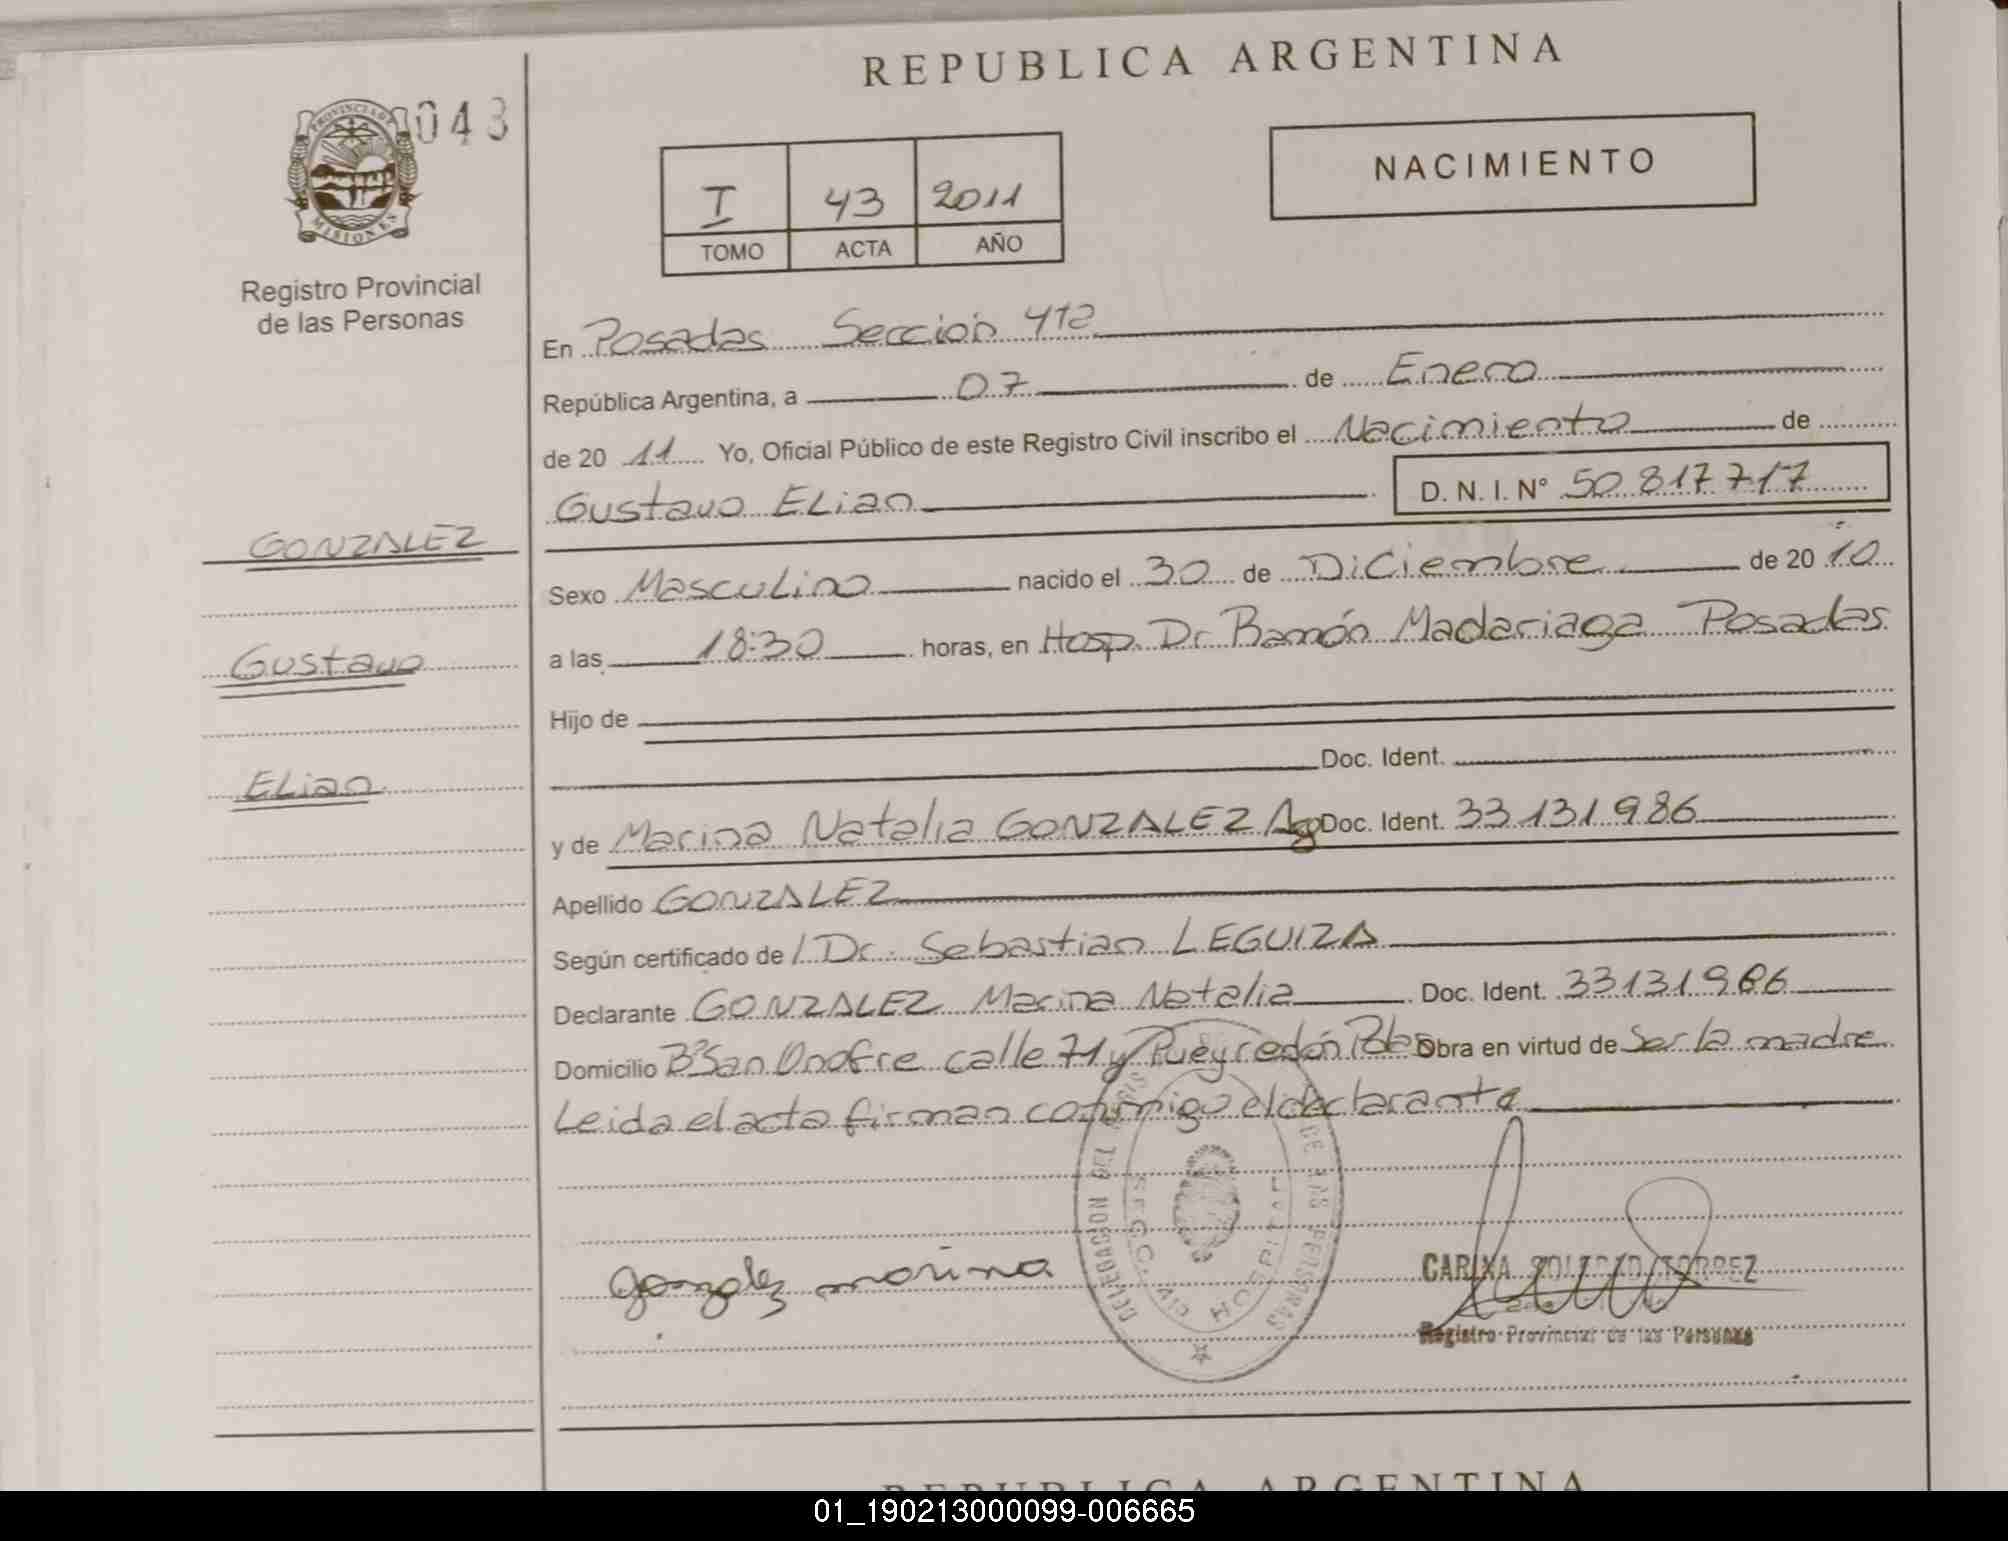 REPUBLICA ARGENTINA
043
PROVINCIA DE
MISIONES
Registro Provincial
de las Personas
NACIMIENTO
I 43 2011
TOMO ACTA AÑO
En Posadas Sección 412
República Argentina, a 07 de Enero
de 20 11 Yo, Oficial Público de este Registro Civil inscribo el Nacimiento de
Gustavo Elian D. N. I. N° 50 817 717
GONZALEZ
Gustavo
Elian
Sexo Masculino nacido el 30 de Diciembre de 20 10
a las 18:30 horas, en Hosp. Dr. Ramón Madariaga Posadas
Hijo de
Doc. Ident.
y de Marina Natalia GONZALEZ Arg Doc. Ident. 33 131 986
Apellido GONZALEZ
Según certificado de / Dr. Sebastian LEGUIZA
Declarante GONZALEZ Marina Natalia Doc. Ident. 33131986
Domicilio B° San Onofre calle 71 y Pueyredón Obra en virtud de Ser la madre
Leida el acta firman conmigo el declarante
DELEGACION DEL DE LAS PERSONAS
SECC. HOSPITAL
gonzalez marina
CARINA SOLEDAD TORREZ
Registro Provincial de las Personas
REPUBLICA ARGENTINA
01_190213000099-006665